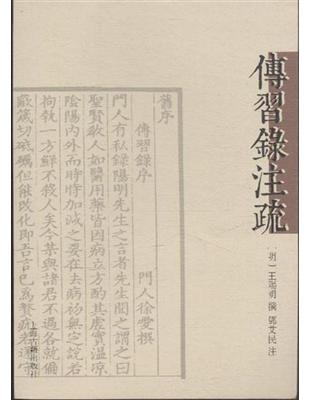 傳習錄注疏
〔明〕王陽明 撰 鄧艾民 注
舊序
傳習錄序
門人徐愛撰
門人有私錄陽明先生之言者先生聞之謂之曰
聖賢敎人如醫用藥皆因病立方酌其虛實溫凉
陰陽內外而時時加減之要在去病初無定說若
拘執一方鮮不殺人矣今某與諸君不過各就偏
蔽箴切砥礪但能改化即吾言已爲贅疣若遂守
上海古籍出版社